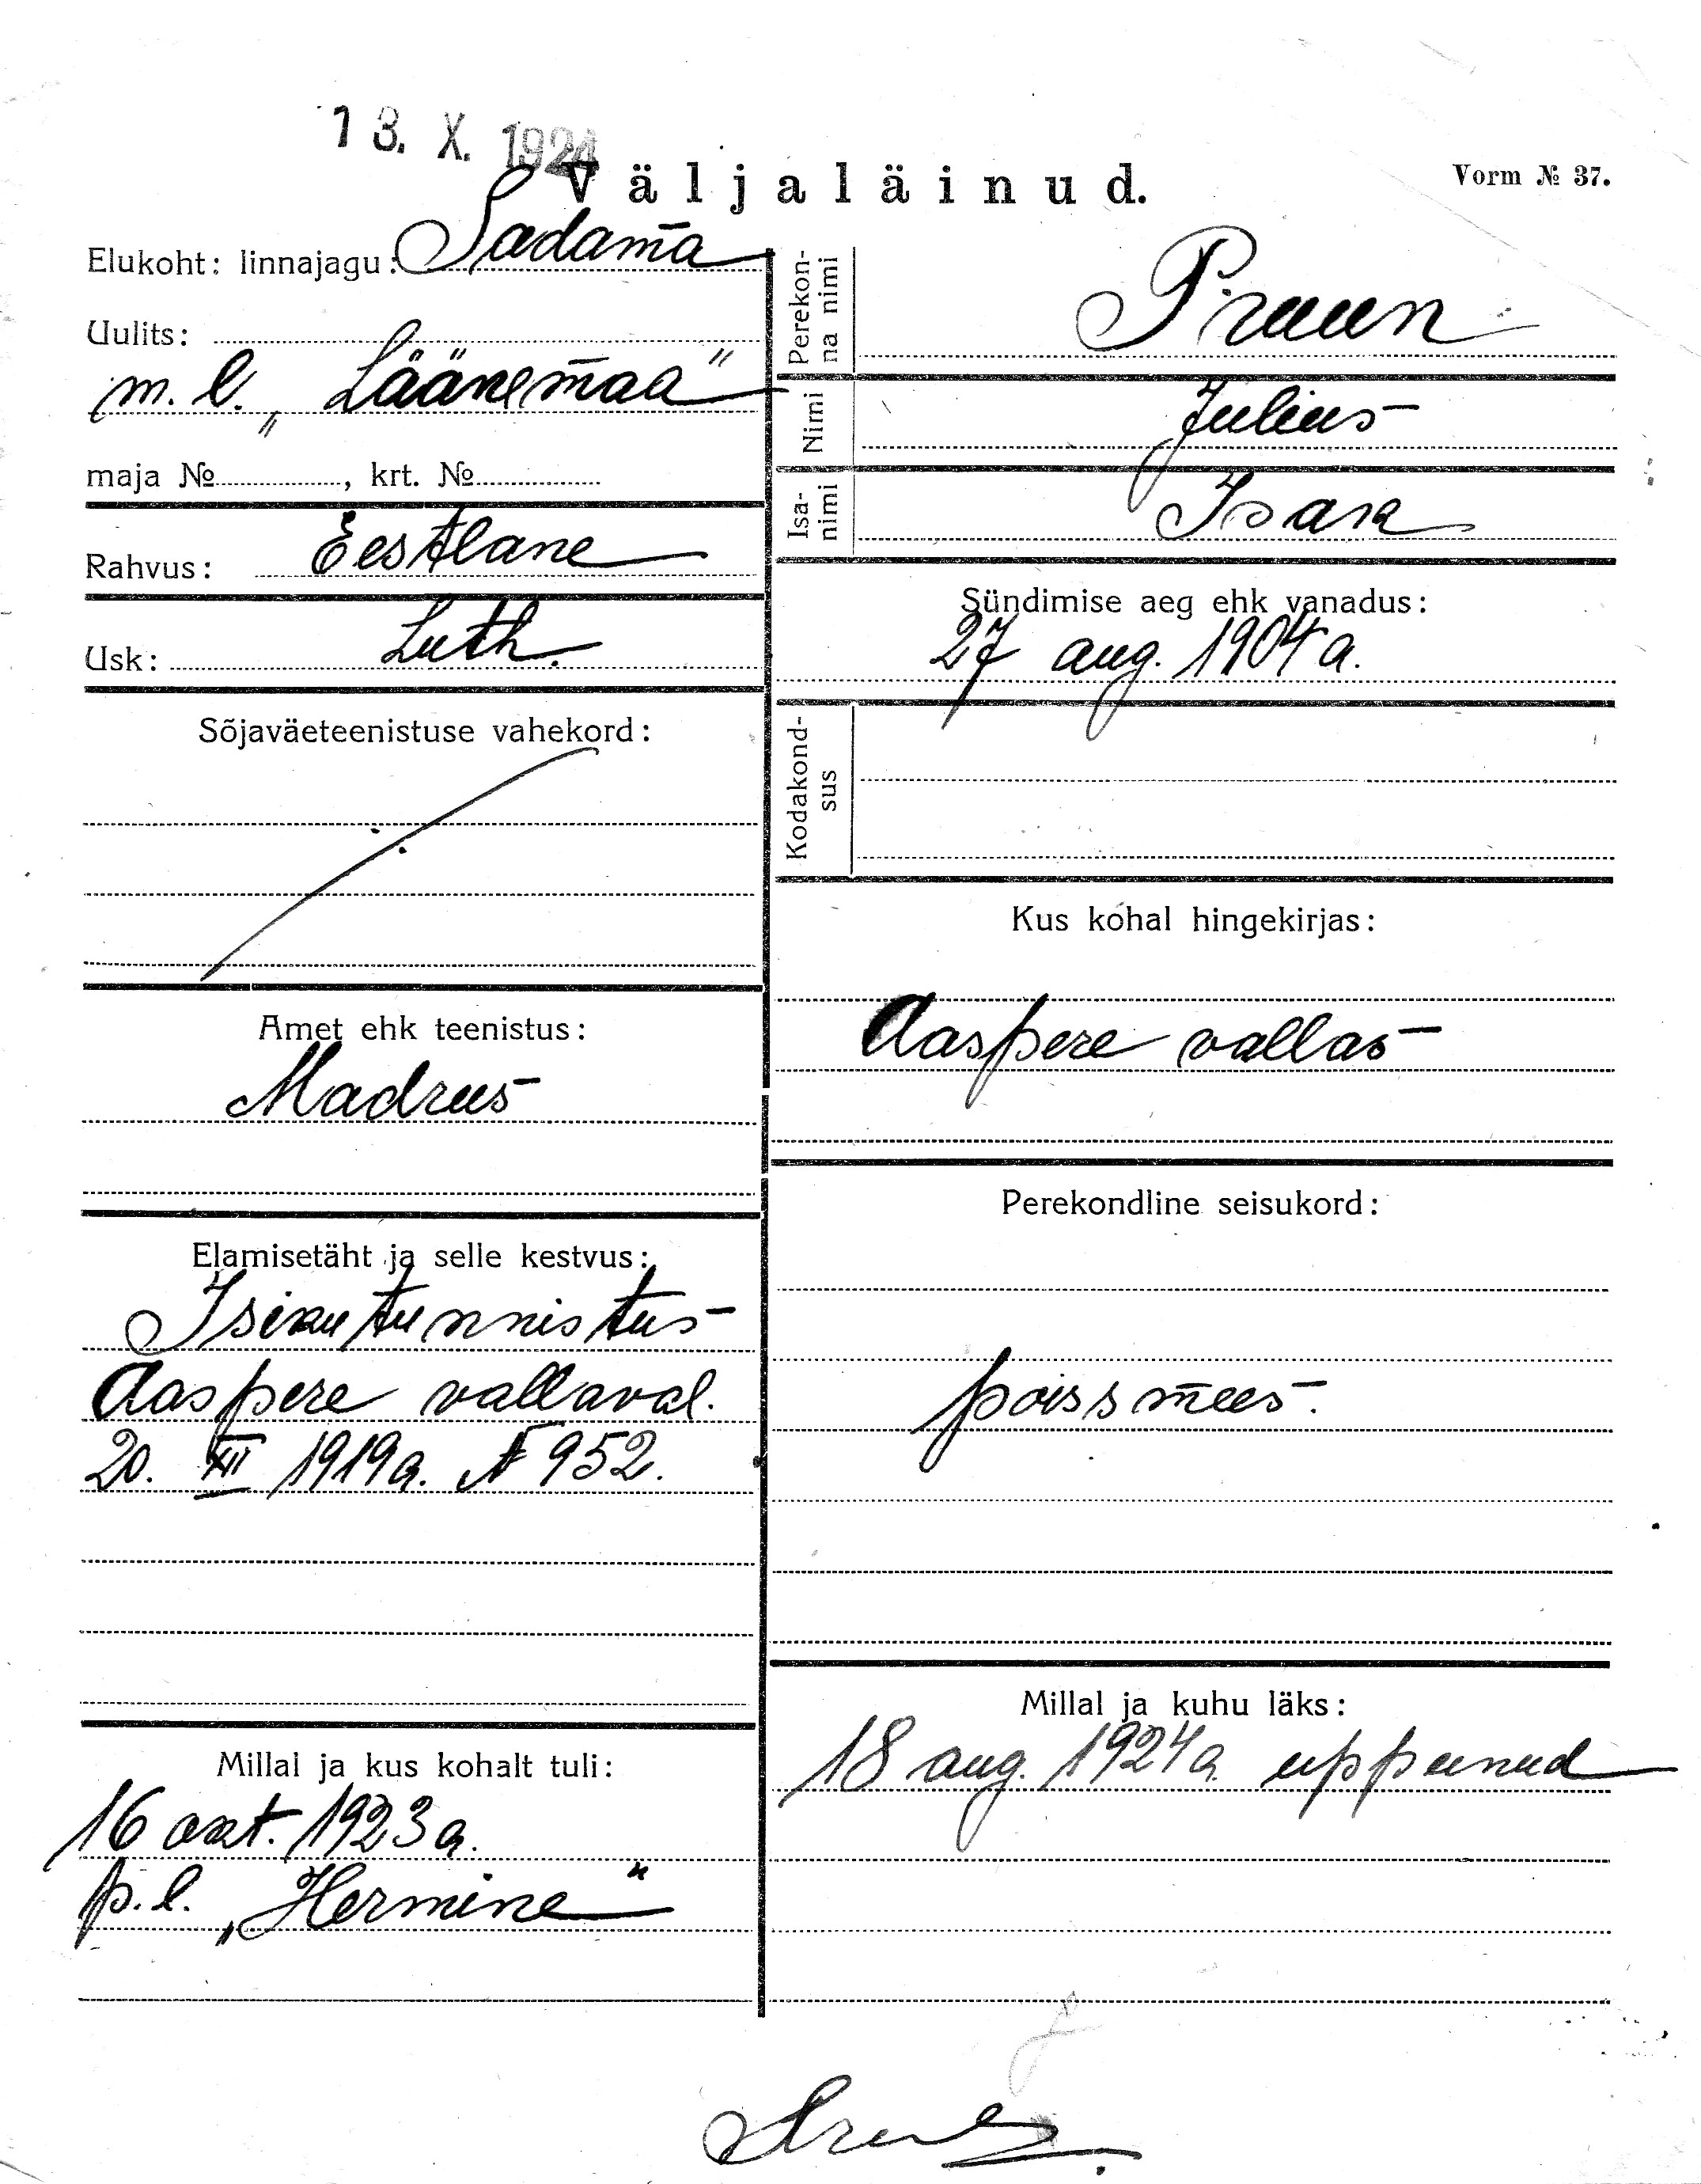 13. X. 1924
Väljaläinud.
Vorm № 37.
Elukoht: linnajagu: Sadama
Uulits:
m. l. „Läänemaa"
maja №, krt. №
Rahvus: Eestlane
Usk: Luth.
Sõjaväeteenistuse vahekord:
Amet ehk teenistus:
Madrus
Elamisetäht ja selle kestvus:
Isikutunnistus
Aaspere vallaval.
20. XII 1919 a. № 952.
Millal ja kus kohalt tuli:
16 okt. 1923 a.
p. l. „Hermine"
Perekon-
na nimi
Pruun
Nimi
Julius
Isa-
nimi
Isak
Sündimise aeg ehk vanadus:
27 aug. 1904 a.
Kodakond-
sus
Kus kohal hingekirjas:
Aaspere vallas
Perekondline seisukord:
poissmees.
Millal ja kuhu läks:
18 aug. 1924 a uppunud